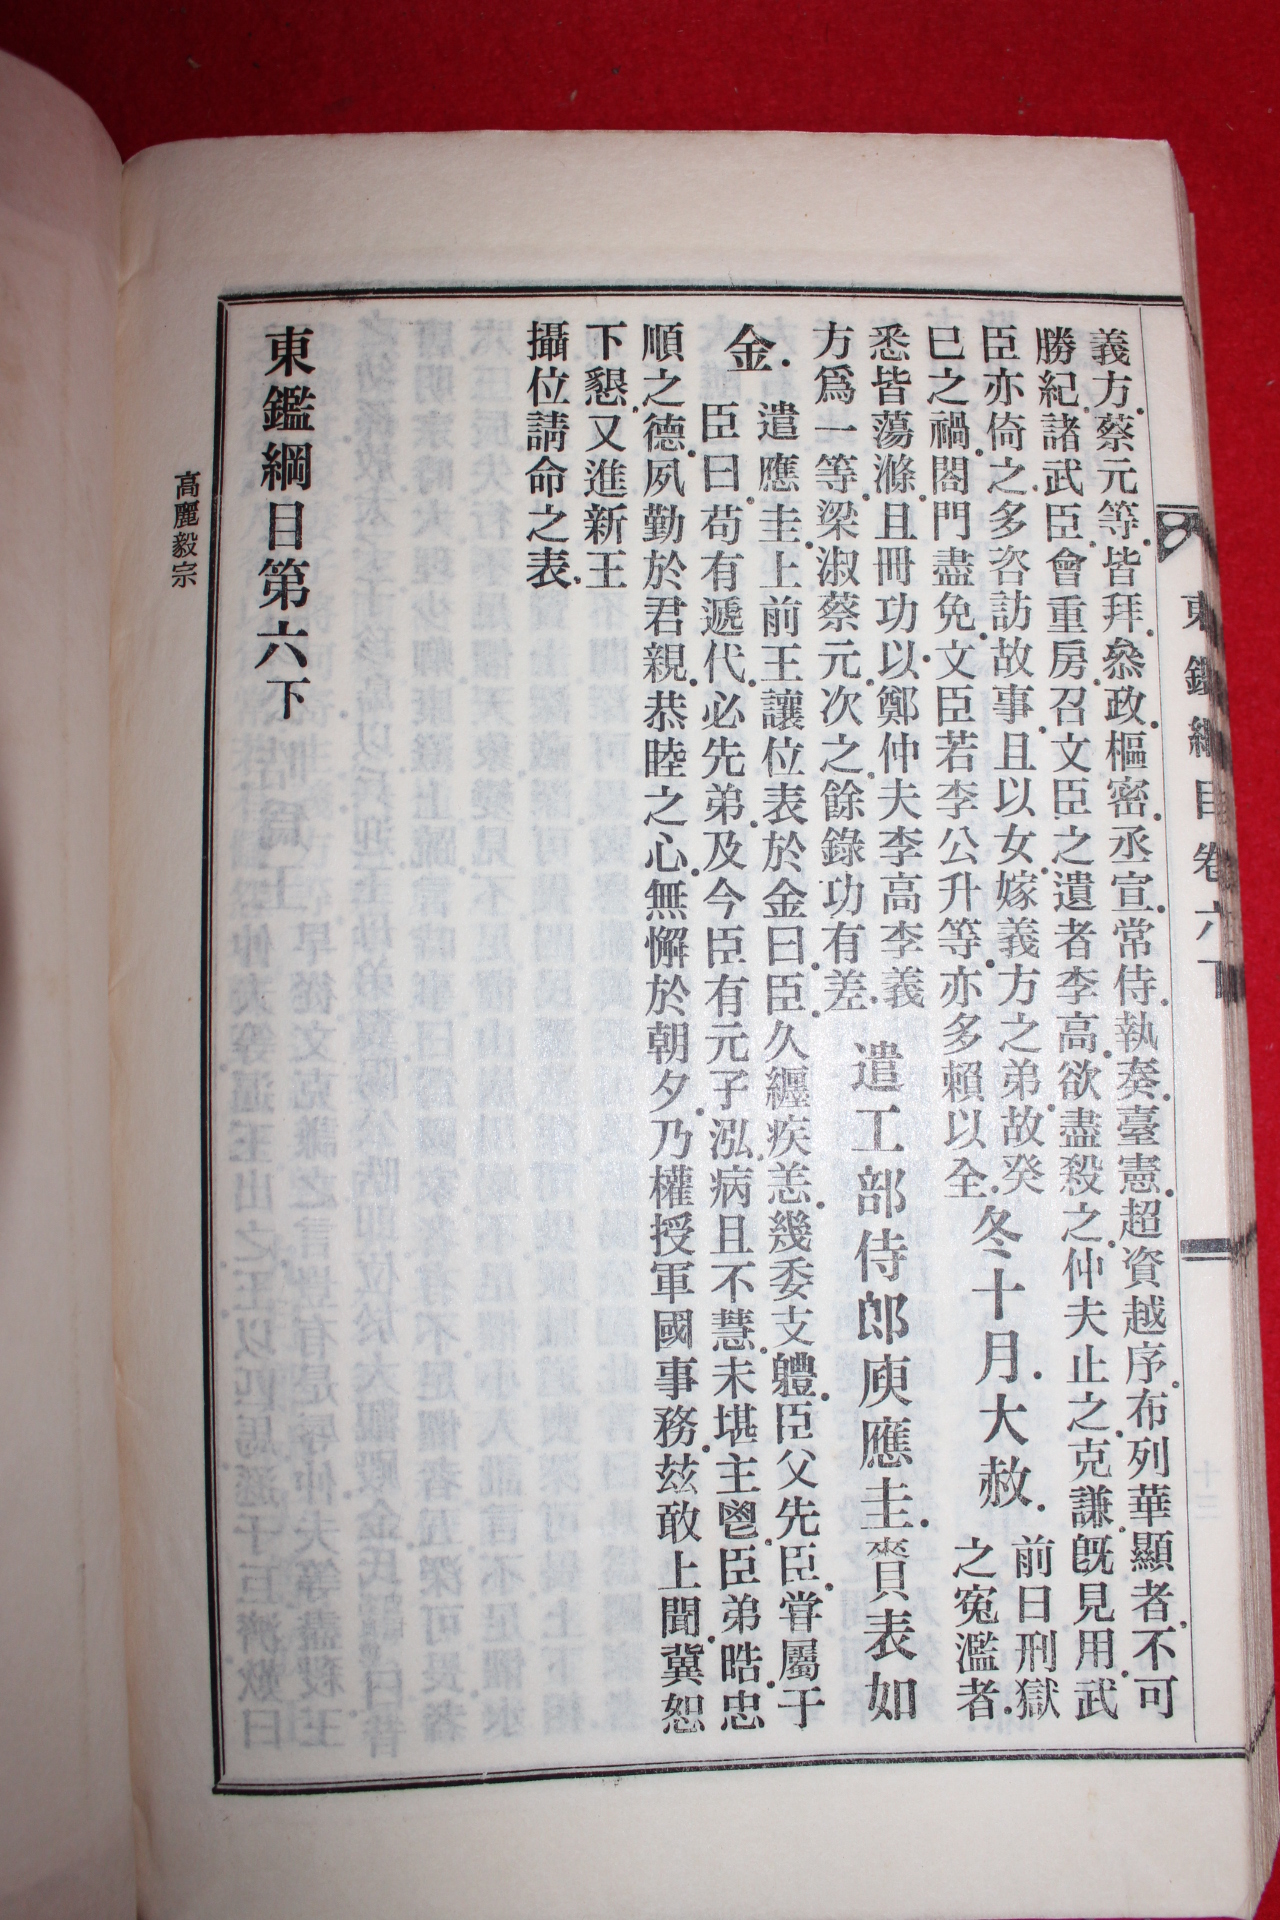 東鑑綱目卷六下
義方蔡元等皆拜叅政樞密丞宣常侍執奏臺憲超資越序布列華顯者不可
勝紀諸武臣會重房召文臣之遺者李高欲盡殺之仲夫止之克謙旣見用武
臣亦倚之多咨訪故事且以女嫁義方之弟故癸
巳之禍閤門盡免文臣若李公升等亦多賴以全
冬十月大赦
前日刑獄
之寃濫者
悉皆蕩滌且冊功以鄭仲夫李高李義
方爲一等梁淑蔡元次之餘錄功有差
遣工部侍郎庾應圭賫表如
金
遣應圭上前王讓位表於金曰臣久纏疾恙幾委支軆臣父先臣甞屬于
臣曰苟有遞代必先弟及今臣有元子泓病且不慧未堪主鬯臣弟晧忠
順之德夙勤於君親恭睦之心無懈於朝夕乃權授軍國事務玆敢上聞冀恕
下懇又進新王
攝位請命之表
東鑑綱目第六下
高麗毅宗